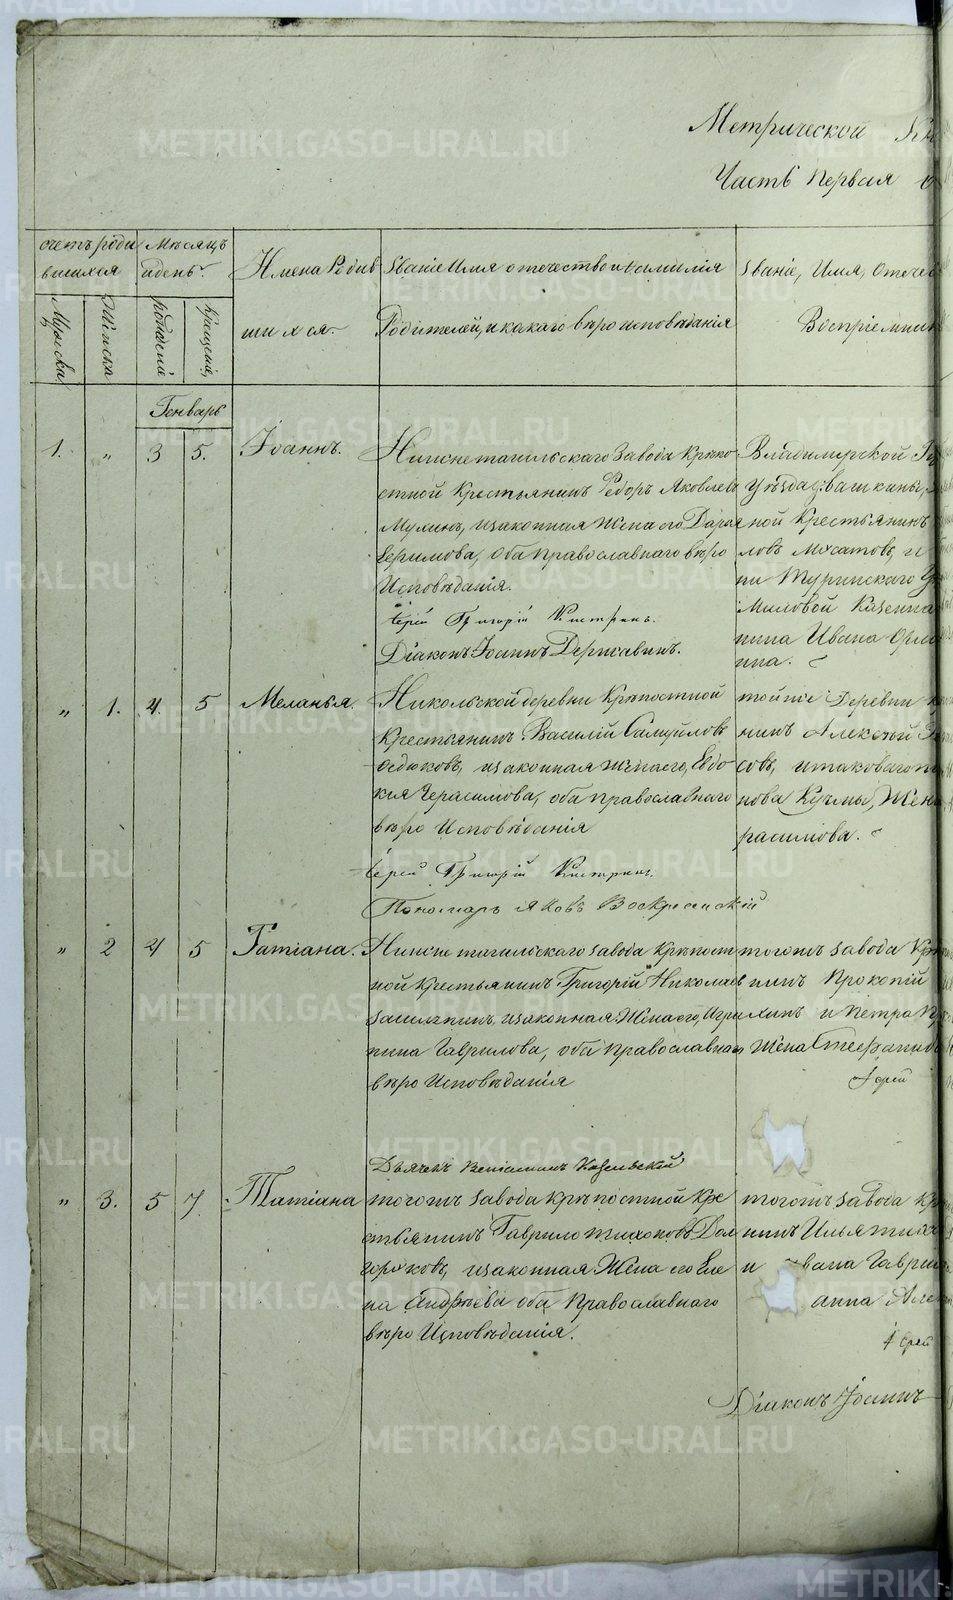 Метрической
Часть первая
счетъ роди
вшихся
Мѣсяцъ
и день.
Имена Родив
шихся.
Званіе Имя отечество и фамилія
Родителей, и какаго вѣроисповѣданія
Званіе, Имя, Отече
Воспріемник
Мужска
Женска
рожденія
крещенія,
Генварь
1. „ 3 5. Іоаннъ.
Нижнетагильскаго Завода Крѣпо
стной Крестьянинъ Ѳедоръ Яковлевъ
Мулинъ, изаконная Жена его Дарья
Ефимова, оба православнаго вѣро
Исповѣданія.
Іерей Григорій
Діаконъ Іоаннъ Державинъ.
Владимирской Гу
уѣзда,
ной Крестьянинъ
ловъ Мохатовъ, и
ни Туринскаго У
Миловой Казенна
нина Ивана Орло
ина.
„ 1. 4. 5 Меланья.
Никольской деревни Крѣпостной
Крестьянинъ Василій Самуйловъ
Федюковъ, изаконная жена его, Евдо
кія Герасимова, оба православнаго
вѣро Исповѣданія
Іерей Григорій
Пономарь Яковъ Воскресенскій
тойже Деревни
нинъ Алексѣй
совъ, итаковаго
нова Кузмы, Жен
расимова.
„ 2 4 5 Татіана.
Нижнетагильскаго завода Крѣпост
ной Крестьянинъ Григорій Николаевъ
изаконная Жена его, Ири
нина Гаврилова, оба Православнаго
вѣро Исповѣданія
Дьячекъ
тогожъ завода Крѣ
нинъ Прокопій
лихъ и Петра
Жена Стефанид
Іерей
„ 3. 5 7. Татіана
тогожъ завода крѣпостной Кре
стьянинъ Гаврило тихоновъ Дол
горуковъ, изаконная Жена его Еле
на Андреева оба Православнаго
вѣро Исповѣданія.
тогожъ завода Крѣ
нинъ Илья
и вана Гаври
анна Але
Іерей
Діаконъ Іоаннъ
METRIKI.GASO-URAL.RU